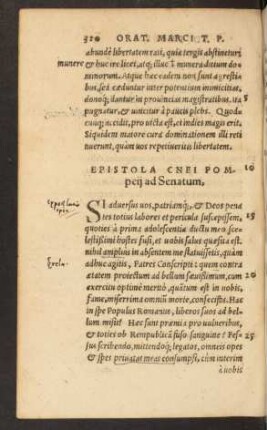 320 ORAT. MARCI T. P.
abundè libertatem rati, quia tergis abstinetur,
munere & huc ire licet, atq; illuc munera ditium do
minorum. Atque hæc eadem non sunt agresti
bus, sed cæduntur inter potentium inimicitias,
donoq; dantur in prouincias magistratibus. ita
pugnatur, & uincitur à paucis plebs. Quodcunq;
accidit, pro uicta est, et indies magis erit,
Siquidem maiore cura dominationem illi reti
nuerunt, quàm uos repetiueritis libertatem.
EPISTOLA CNEI POM
peij ad Senatum.
SI aduersus uos, patriamq;, & Deos pena
tes totius labores et pericula suscepissem,
quoties à prima adolescentia ductu meo sce
lestissimi hostes fusi, et uobis salus quæsita est:
nihil amplius in absentem me statuissetis, quàm
adhuc agitis, Patres Conscripti: quem contra
ætatem proiectum ad bellum sæuissimum, cum
exercitu optimè merito, quātum est in uobis,
fame, miserrima omniū morte, confecistis. Hac
in spe Populus Romanus, liberos suos ad bel
lum misit? Hæc sunt præmia pro uulneribus,
& toties ob Rempublicā fuso sanguine? Fes-
sus scribendo, mittendoq; legatos, omneis opes
& spes priuatas meas consumpsi, cùm interim
à uobis
5
10
15
20
25